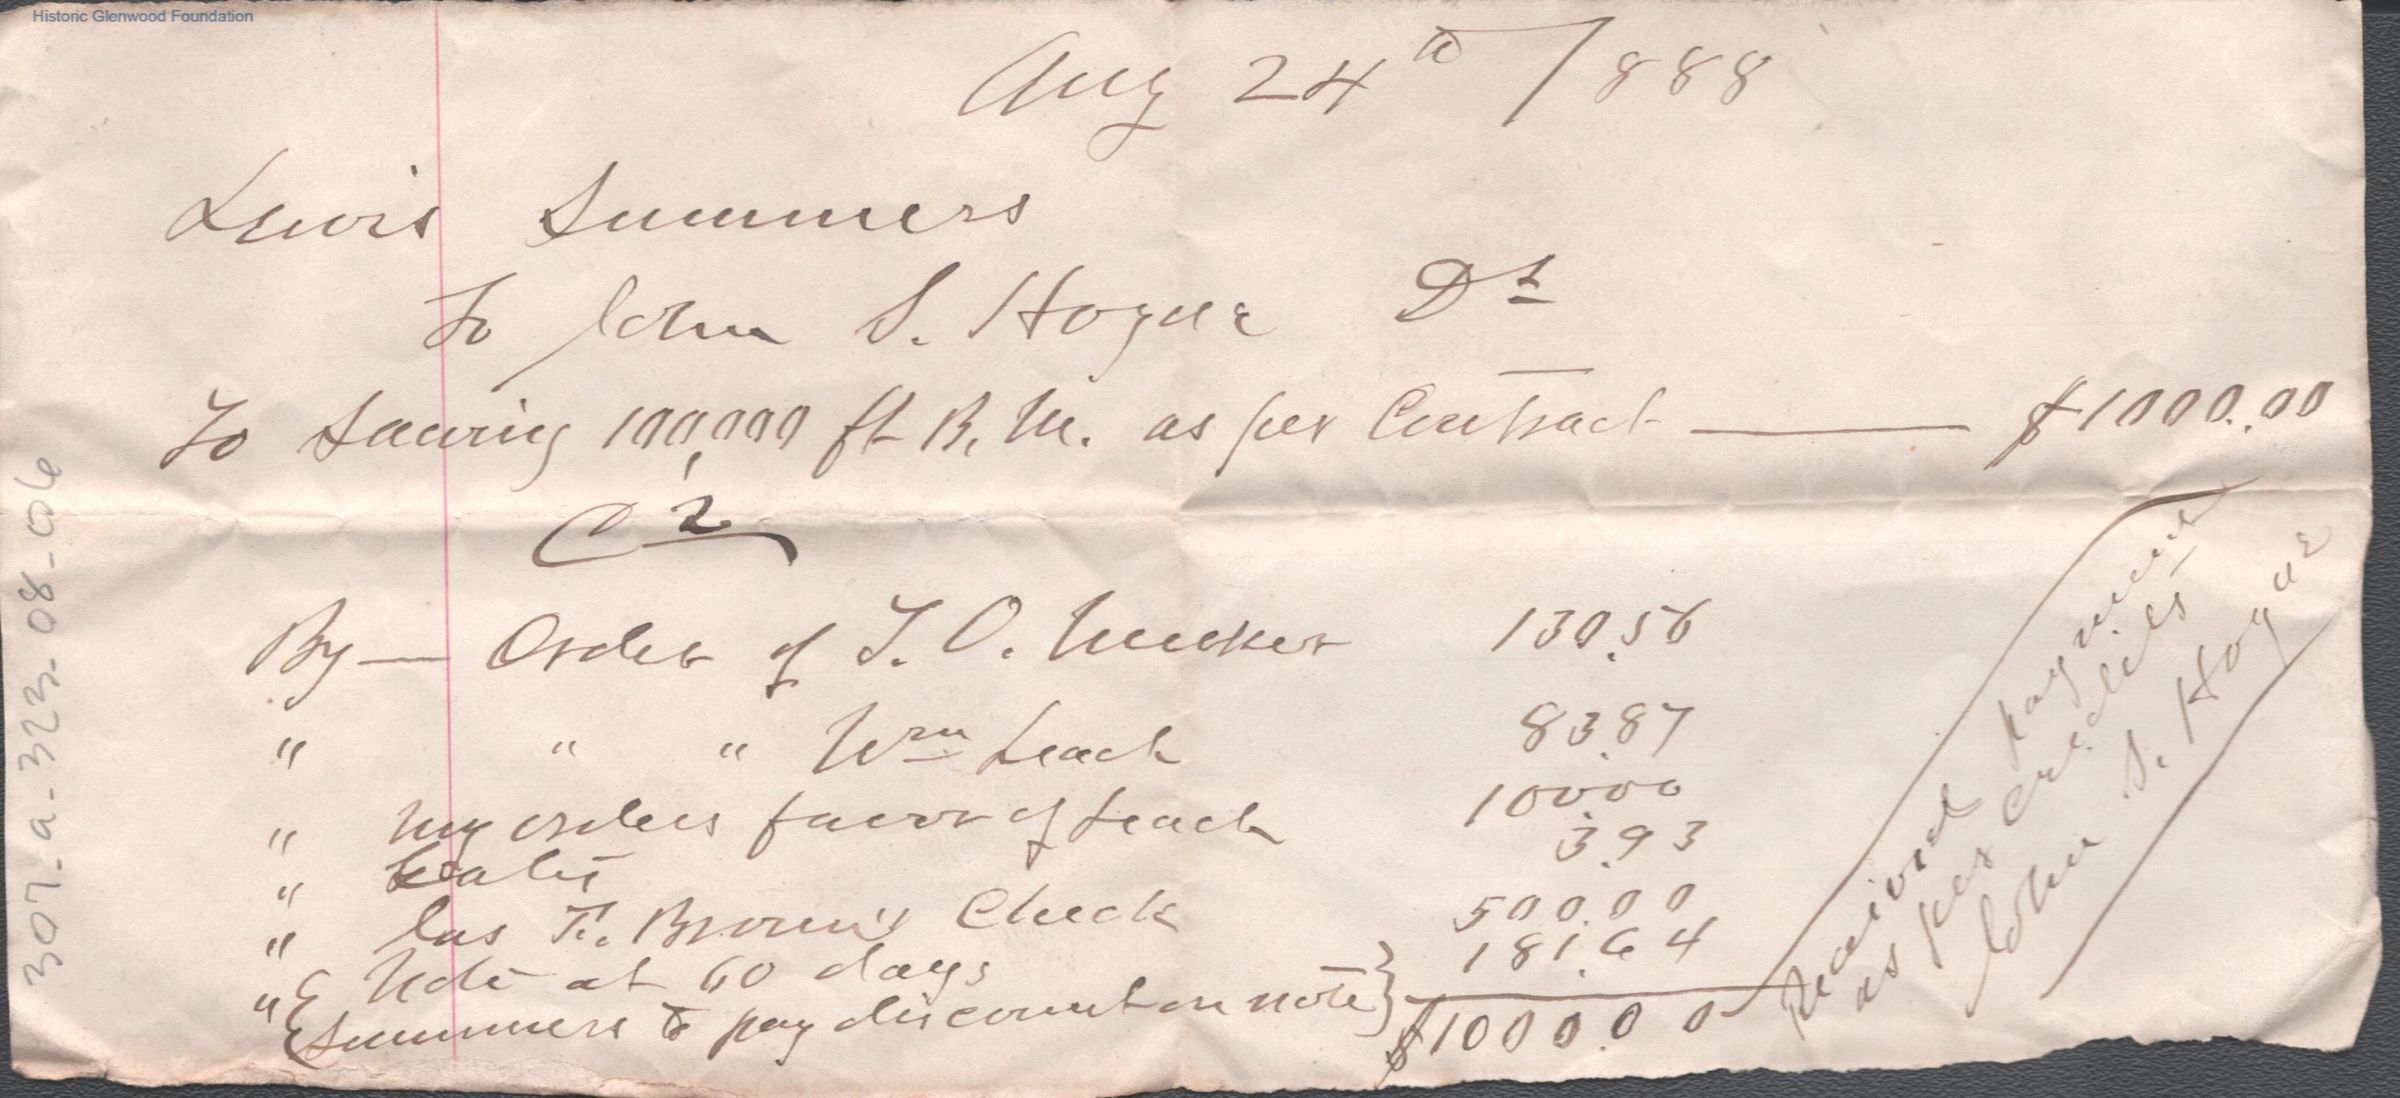 Historic Glenwood Foundation
Aug 24th 1888
Lewis Summers
To John S. Hogue Dr
To Sawing 100,000 ft B. M. as per Contract — $1000.00
Cr
By — Order of T. O. 130.56
" " " Wm Leach 83.87
" My orders favor of Leach 100.00
" 3.93
" Jas F. Brown's Check 500.00
" Note at 60 days 181.64
Summers to pay discount on note
$1000.00
Received payment
as per credits
John S. Hogue
307-a-323-08-06